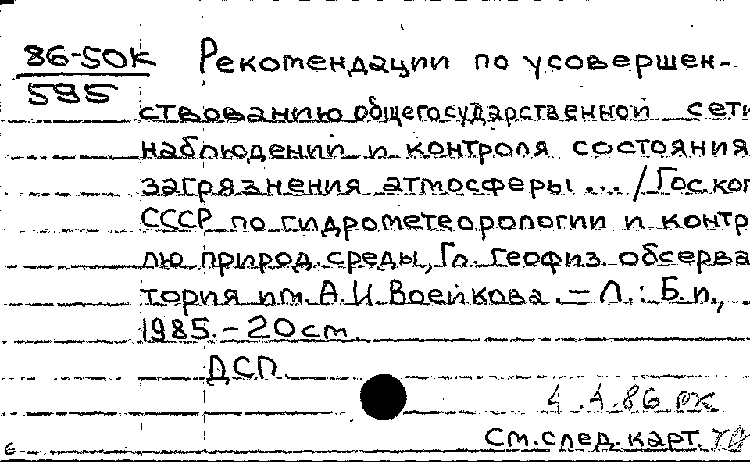 86-50к Рекомендации по усовершен-
595
ствованию общегосударственной сети
наблюдений и контроля состояния
загрязнения атмосферы... / Госком
СССР по гидрометеорологии и контр
лю природ. среды, Гл. геофиз. обсерва
тория им. А.И. Воейкова. - Л.: Б.и.,
1985. - 20 см
ДСП.
4.4.86 рк
См. след. карт.
6